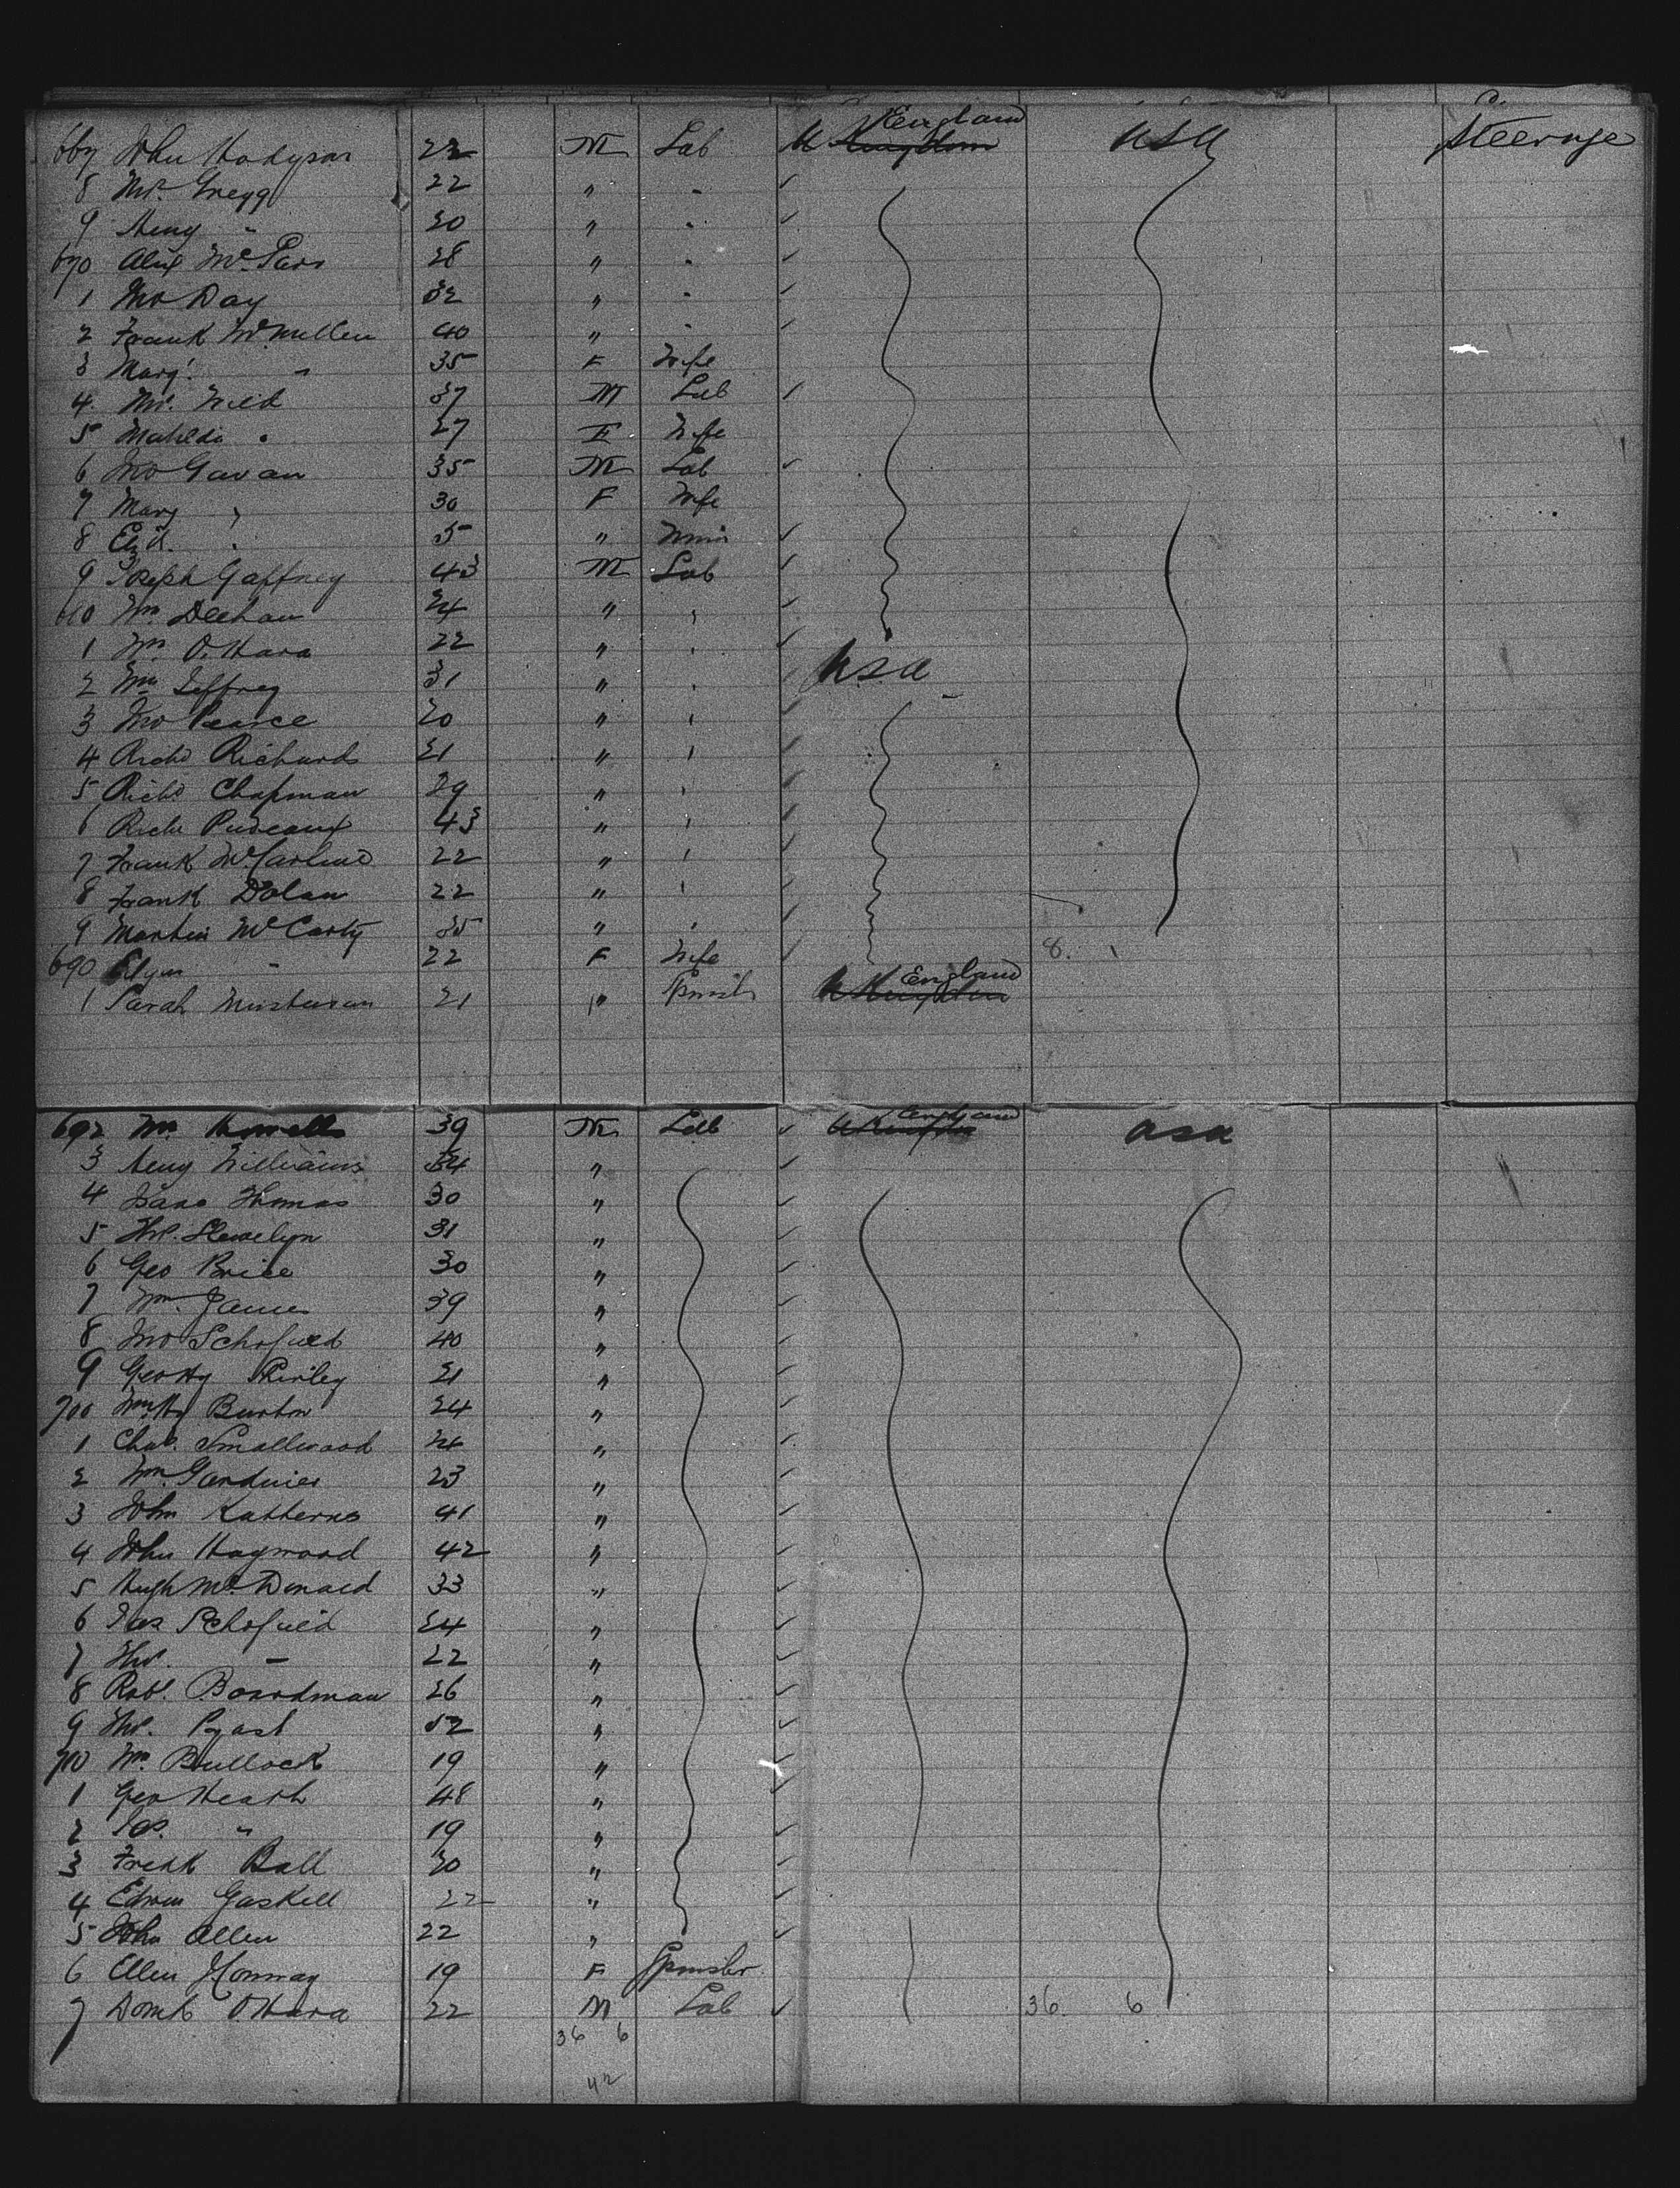 667 John Hodgson 22 M Lab U Kingdom England USA Steerage
8 Mr. Gregg 22 " "
9 Heny " 20 " "
670 Alex Mc 28 " "
1 Jno Day 32 " "
2 Frank McMullen 40 " "
3 Margt. " 35 F Wife
4 Wild 37 M Lab
5 Matilda " 27 F Wife
6 Jno Gavan 35 M Lab
7 Mary " 30 F Wife
8 Eliz. " 5 "
9 Joseph Gaffney 43 M Lab
680 Wm Deehan 24 " "
1 Wm O'Hara 22 " " USA
2 Wm Jeffrey 31 " "
3 Jno Pearce 20 " "
4 Richd Richards 21 " "
5 Richd Chapman 29 " "
6 Richd Prideaux 43 " "
7 Frank 22 " "
8 Frank Dolan 22 " "
9 Martin McCarty 35 " "
690 " 22 F Wife 8.
1 Sarah 21 " Spinstr U Kingdom England
692 Wm Howells 39 M Lab U Kingdom England USA
3 Heny Williams 34 "
4 Isaac Thomas 30 "
5 Tho. Llewelyn 31 "
6 Geo Price 30 "
7 Wm. James 39 "
8 Jno Schofield 40 "
9 Geo Hy 21 "
700 Wm Hy Burton 24 "
1 Chas. Smallwood 24 "
2 Wm Gardner 23 "
3 John Katherns 41 "
4 John Haywood 42 "
5 Hugh McDonald 33 "
6 Jas Schofield 24 "
7 Tho. " 22 "
8 Robt. Boardman 26 "
9 Tho. 52 "
710 Wm Bullock 19 "
1 Geo Heath 48 "
2 Jos. " 19 "
3 Fredk Ball 20 "
4 Edwin Gaskell 22 "
5 John Allen 22 "
6 Ellen 19 F Spinster
7 Domk O'Hara 22 M Lab 36 6
36 6
42